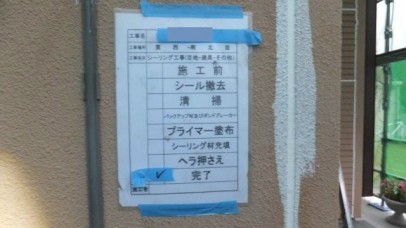 工事名
工事場所 東 西 南 北 面
工事名称 シーリング工事(目地・建具・その他)
施 工 前
シール撤去
清 掃
バックアップ材又はボンドブレーカー
プライマー塗布
シーリング材充填
ヘラ押さえ
✓ 完了
施工者